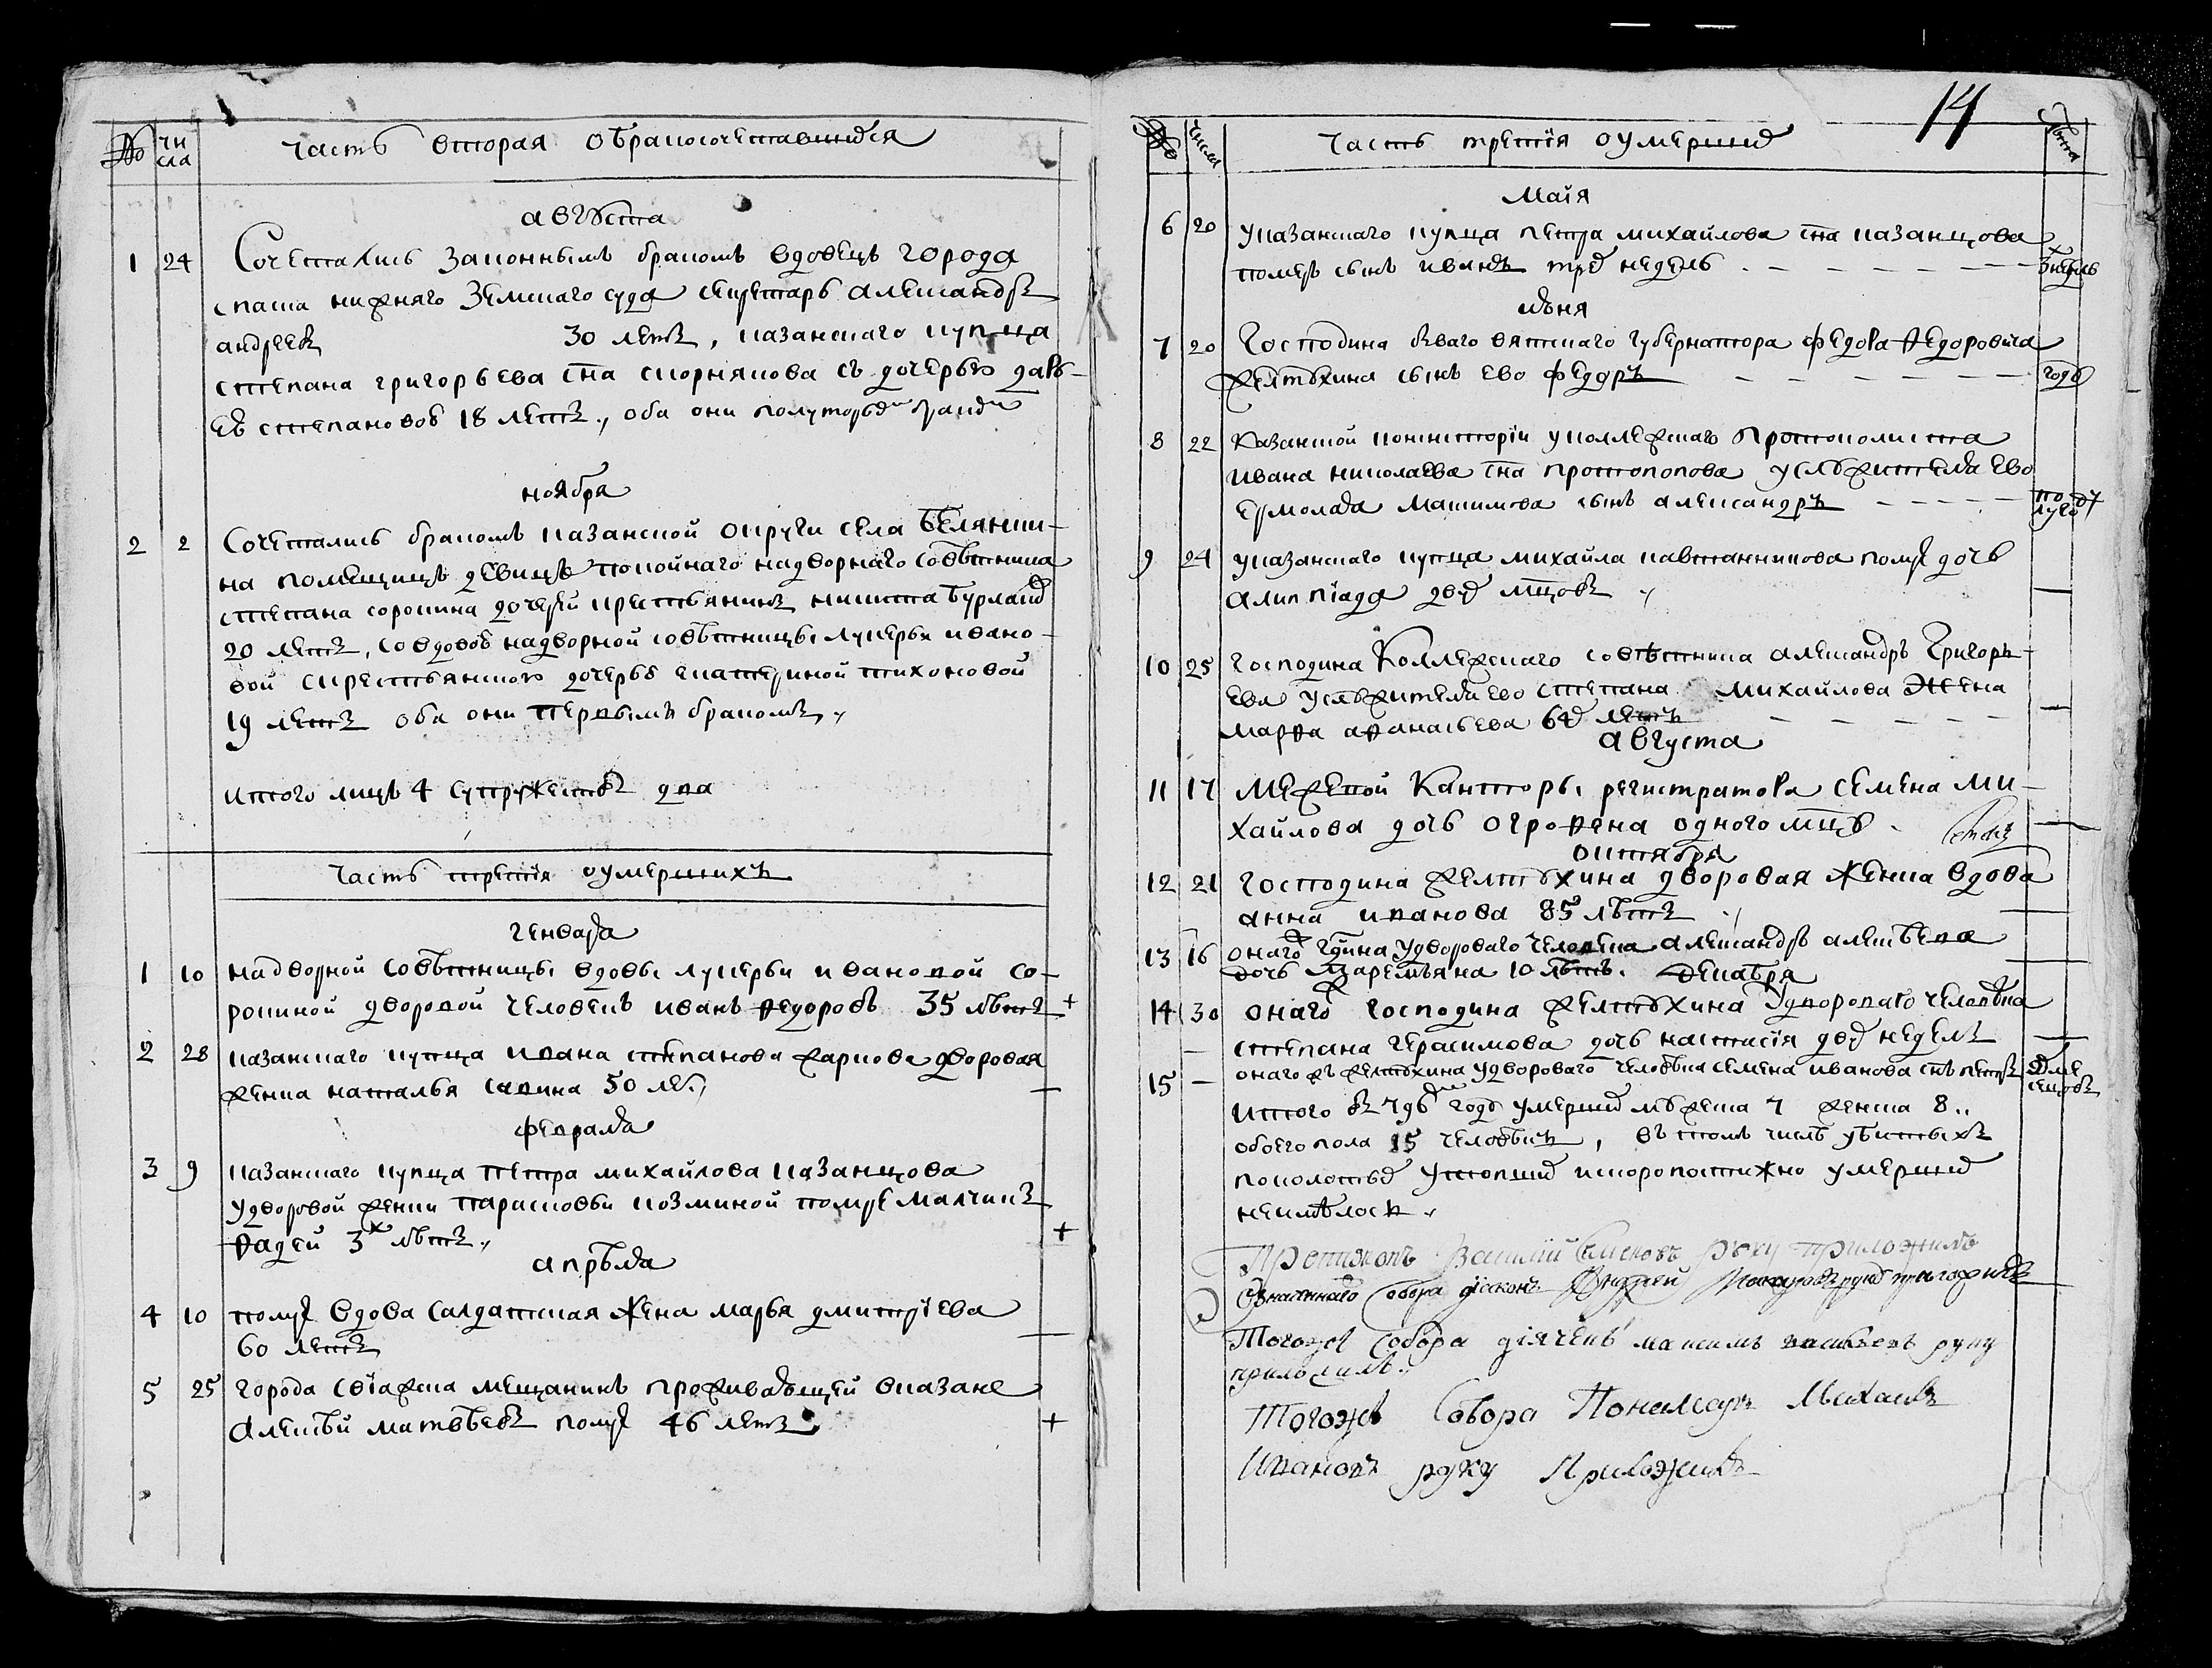 № чи
сла
часть вторая о бракосочетавшихся
августа
1 24 Сочетались законнымъ бракомъ вдовецъ города
спаска нижняго земскаго суда секретарь александръ
андреевъ 30 летъ, казанскаго купца
степана григорьева сна с дочерью дарь-
ею степановою 18 летъ, оба они бракомъ
ноября
2 2 Сочетались бракомъ казанской округи села
на помещицъ девицъ покойнаго надворнаго советника
степана сорокина дочерей крестьянинъ никита
20 летъ, со вдовою надворной советницы лукерьи ивано-
вой с крестьянскою дочерью екатериной тихоновой
19 летъ оба они первымъ бракомъ
итого лицъ 4 супружествъ два
часть третiя о умершихъ
генваря
1 10 надворной советницы вдовы лукерьи ивановой со-
рокиной дворовой человекъ иванъ федоровъ 35 летъ +
2 28 казанскаго купца ивана степанова жаркова дворовая
женка наталья савина 50 ле.
февраля
3 9 казанскаго купца петра михайлова казанцова
у дворовой женки парасковьи козминой помре малчикъ
фадей 3х летъ +
апреля
4 10 помре вдова салдатская жена марья дмитрiева
60 летъ
5 25 города свiяжска мещанинъ проживающей в казане
алексей матвеевъ помре 46 летъ +
14
№ числа часть третiя о умершихъ лета
маiя
6 20 у казанскаго купца петра михайлова сна казанцова
померъ сынъ иванъ трехъ недель 3х недель
июня
7 20 Господина бываго вятскаго губернатора федора федоровича
желтухина сынъ ево федоръ году
8 22 казанской консисторiи у коллежскаго протоколиста
ивана николаева сна протопопова у служителя ево
ермолая максимова сынъ александръ полу году
9 24 у казанскаго купца михайла кавтанникова помре дочь
алимпiада двухъ мцовъ
10 25 господина Коллежскаго советника александръ Григорь-
ева у служителя ево степана михайлова жена
марфа афанасьева 64 летъ
августа
11 17 межевой канторы регистратора семена ми-
хайлова дочь огрофена одного мцъ
октября
12 21 господина желтухина дворовая женка вдова
анна иванова 85 летъ
13 16 онаго гдина у двороваго человека александръ алексеева
дочь маремьяна 10 летъ. декабря
14 30 онаго господина желтухина у двороваго человека
степана герасимова дочь настасiя двух недель
15 — онаго жъ желтухина у двороваго человека семена иванова снъ петръ месецовъ
итого въ 796м годе умершихъ мужеска 7 женска 8
обоего пола 15 человекъ, въ томъ числе убитыхъ
поколотыхъ утопшихъ и скоропостижно умершихъ
неимелось
Протопопъ Василiй руку приложилъ
Означеннаго собора дiаконъ Андрей руку приложилъ
Тогоже собора дiячекъ максимъ васильевъ руку
приложилъ
Тогожъ Собора Понамарь Михаилъ
Ивановъ руку Приложилъ